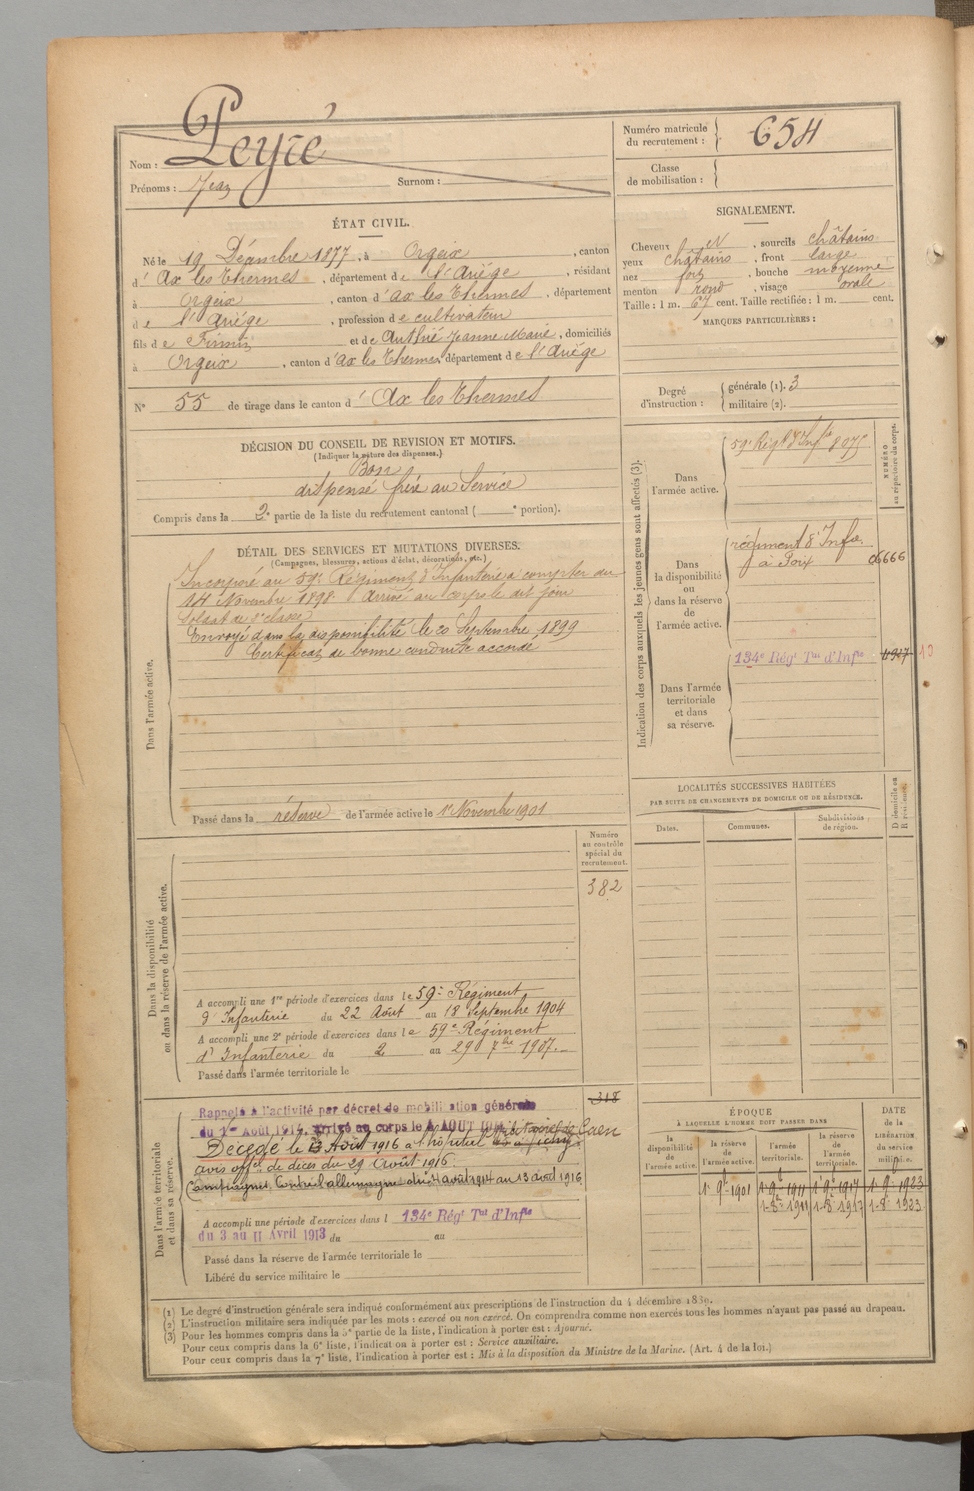 Nom : Peyré
Prénoms : Jean Surnom :
Numéro matricule du recrutement : 654
Classe de mobilisation :
ÉTAT CIVIL.
Né le 19 Décembre 1877, à Orgeix, canton
d' Ax les Thermes, département de l'Ariége, résidant
à Orgeix, canton d'Ax les Thermes, département
de l'Ariége, profession de cultivateur
fils de Firmin et de Authié Jeanne Marie, domiciliés
à Orgeix, canton d'Ax les Thermes, département de l'Ariége
N° 55 de tirage dans le canton d' Ax les Thermes
SIGNALEMENT.
Cheveux et, sourcils châtains
yeux châtains, front large
nez fort, bouche moyenne
menton rond, visage ovale
Taille : 1 m. 67 cent. Taille rectifiée : 1 m. cent.
MARQUES PARTICULIÈRES :
Degré d'instruction : générale (1). 3
militaire (2).
DÉCISION DU CONSEIL DE REVISION ET MOTIFS.
(Indiquer la nature des dispenses.)
Bon
dispensé frère au Service
Compris dans la 2e partie de la liste du recrutement cantonal ( e portion).
DÉTAIL DES SERVICES ET MUTATIONS DIVERSES.
(Campagnes, blessures, actions d'éclat, décorations, etc.)
Dans l'armée active.
Incorporé au 59e Régiment d'Infanterie à compter du
14 Novembre 1898 Arrivé au corps le dit jour
Soldat de 2e classe
Envoyé dans la disponibilité le 20 Septembre 1899
Certificat de bonne conduite accordé
Passé dans la réserve de l'armée active le 1er Novembre 1901
Indication des corps auxquels les jeunes gens sont affectés (3).
NUMÉRO au répertoire du corps.
Dans l'armée active.
59e Régt d'Infie 8075
Dans la disponibilité ou dans la réserve de l'armée active.
régiment d'Infie
à Foix 06666
Dans l'armée territoriale et dans sa réserve.
134e Régt Tal d'Infie
LOCALITÉS SUCCESSIVES HABITÉES
PAR SUITE DE CHANGEMENTS DE DOMICILE OU DE RÉSIDENCE.
Dates. Communes. Subdivisions de région. D domicile ou R résidence.
Dans la disponibilité ou dans la réserve de l'armée active.
Numéro au contrôle spécial du recrutement.
382
A accompli une 1re période d'exercices dans le 59e Régiment
d'Infanterie du 22 Août au 18 Septembre 1904
A accompli une 2e période d'exercices dans le 59e Régiment
d'Infanterie du 2 au 29 7bre 1907.
Passé dans l'armée territoriale le
Dans l'armée territoriale et dans sa réserve.
318
Rappelé à l'activité par décret de mobilisation générale
du 1er Août 1914. Arrivé au corps le 4 AOUT 1914
Décédé le 23 Août 1916 à l'hôpital Caen
avis offel de décès du 29 Août 1916.
Campagnes, Contre l'allemagne du 4 août 1914 au 13 août 1916
A accompli une période d'exercices dans l 134e Régt Tal d'Infie
du 3 au 11 Avril 1913 du au
Passé dans la réserve de l'armée territoriale le
Libéré du service militaire le
ÉPOQUE
À LAQUELLE L'HOMME DOIT PASSER DANS
la disponibilité de l'armée active. la réserve de l'armée active. l'armée territoriale. la réserve de l'armée territoriale.
DATE de la LIBÉRATION du service militaire.
1 9bre 1901 1 9 1911 1 9 1917 1 9 1923
1-8bre 1911 1-8 1917 1-8 1923
(1) Le degré d'instruction générale sera indiqué conformément aux prescriptions de l'instruction du 4 décembre 1889.
(2) L'instruction militaire sera indiquée par les mots : exercé ou non exercé. On comprendra comme non exercés tous les hommes n'ayant pas passé au drapeau.
(3) Pour les hommes compris dans la 5e partie de la liste, l'indication à porter est : Ajourné.
Pour ceux compris dans la 6e liste, l'indication à porter est : Service auxiliaire.
Pour ceux compris dans la 7e liste, l'indication à porter est : Mis à la disposition du Ministre de la Marine. (Art. 4 de la loi.)